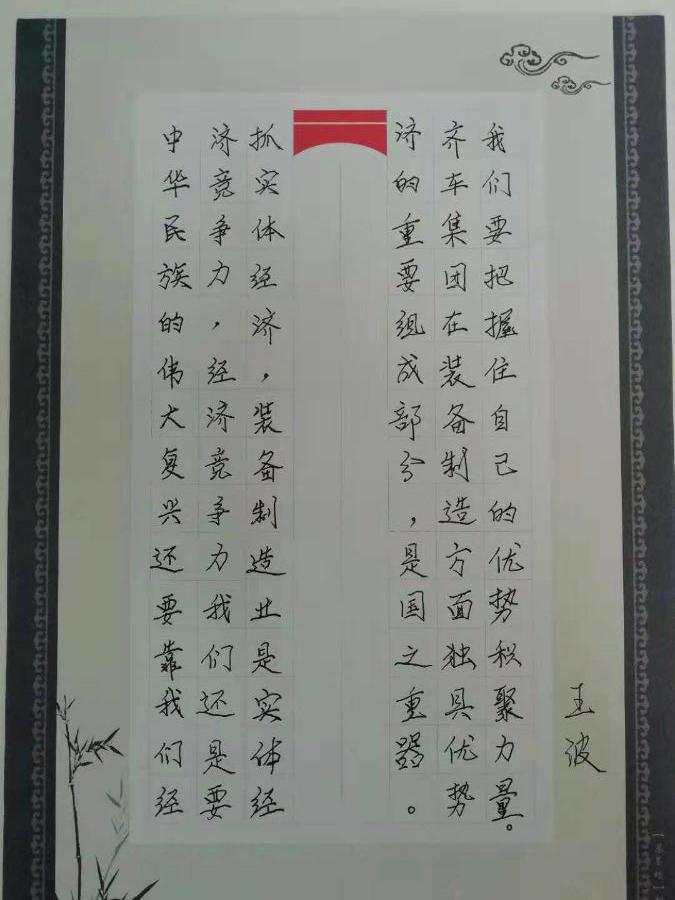 中华民族的伟大复兴还要靠我们经
济竞争力，经济竞争力我们还是要
抓实体经济，装备制造业是实体经
济的重要组成部分，是国之重器。
齐车集团在装备制造方面独具优势
我们要把握住自己的优势积聚力量。
王波